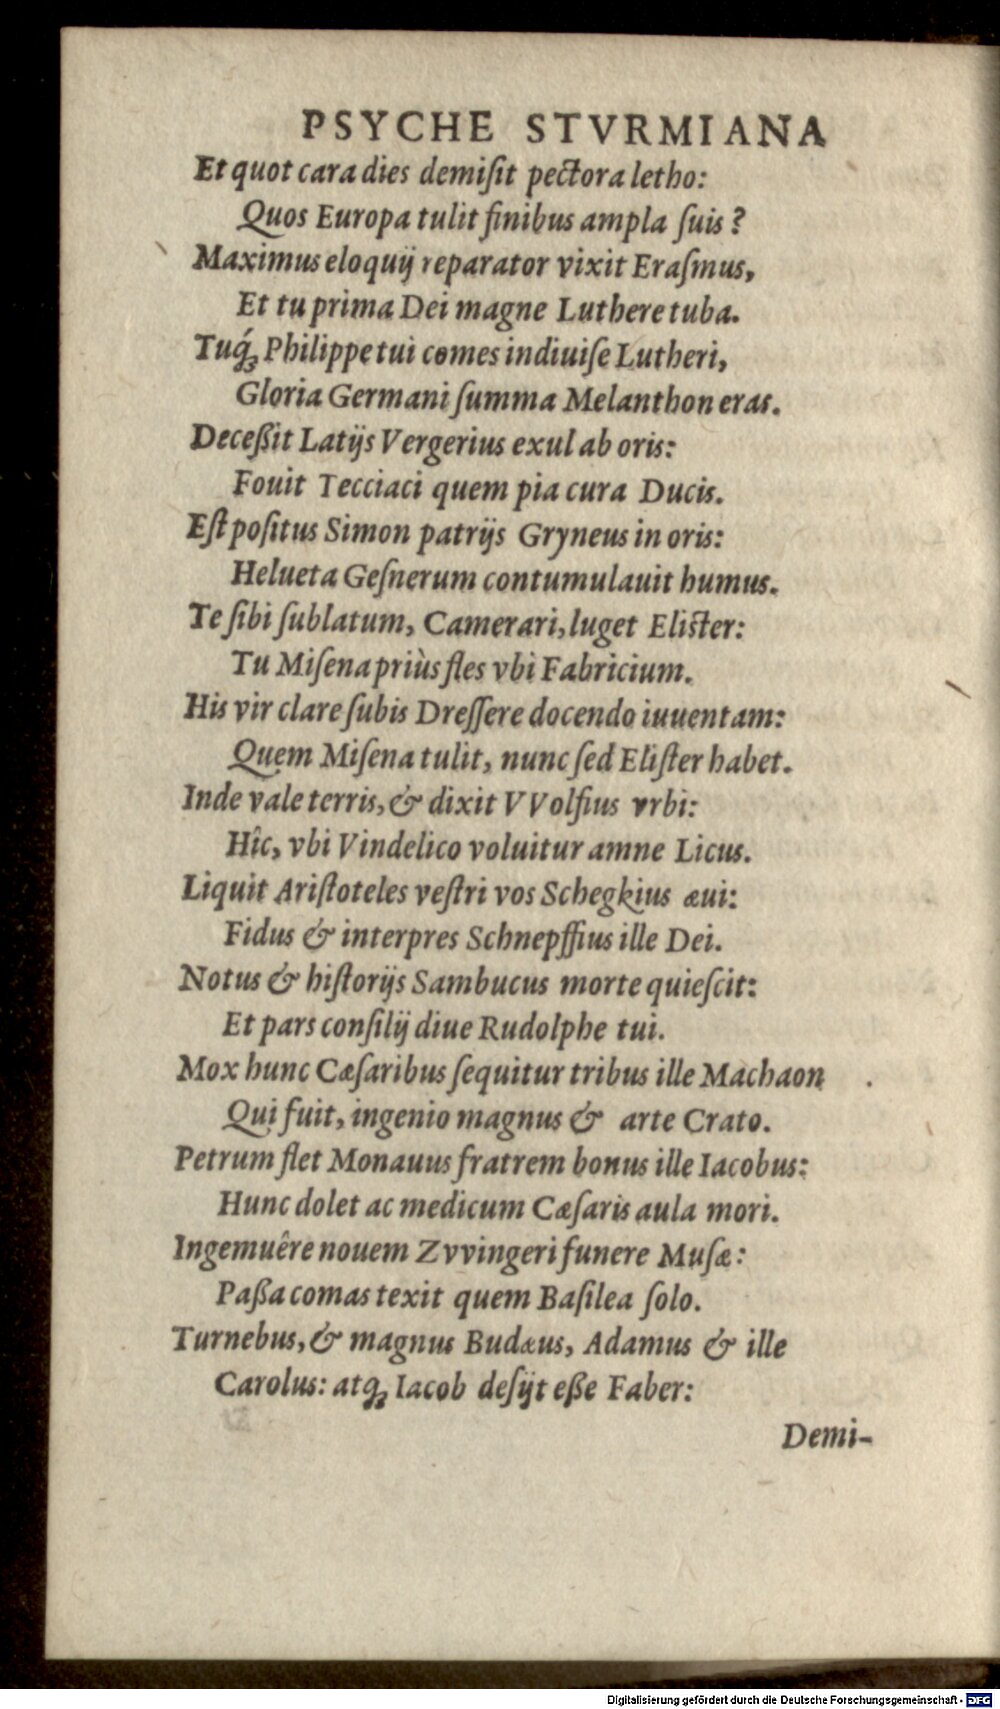 PSYCHE STVRMIANA
Et quot cara dies demiſit pectora letho:
Quos Europa tulit finibus ampla ſuis?
Maximus eloquij reparator vixit Eraſmus,
Et tu prima Dei magne Luthere tuba.
Tuq́ꝫ Philippe tui comes indiuiſe Lutheri,
Gloria Germani ſumma Melanthon eras.
Deceßit Latijs Vergerius exul ab oris:
Fouit Tecciaci quem pia cura Ducis.
Eſt poſitus Simon patrijs Gryneus in oris:
Helueta Geſnerum contumulauit humus.
Te ſibi ſublatum, Camerari, luget Eliſter:
Tu Miſena priùs fles vbi Fabricium.
His vir clare ſubis Dreſſere docendo iuuentam:
Quem Miſena tulit, nunc ſed Eliſter habet.
Inde vale terris, & dixit VVolfius vrbi:
Hîc, vbi Vindelico voluitur amne Licus.
Liquit Ariſtoteles veſtri vos Schegkius æui:
Fidus & interpres Schnepffius ille Dei.
Notus & hiſtorijs Sambucus morte quieſcit:
Et pars conſilij diue Rudolphe tui.
Mox hunc Cæſaribus ſequitur tribus ille Machaon
Qui fuit, ingenio magnus & arte Crato.
Petrum flet Monauus fratrem bonus ille Iacobus:
Hunc dolet ac medicum Cæſaris aula mori.
Ingemuêre nouem Zvvingeri funere Muſæ:
Paßa comas texit quem Baſilea ſolo.
Turnebus, & magnus Budæus, Adamus & ille
Carolus: atqꝫ Iacob deſijt eße Faber:
Demi-
Digitalisierung gefördert durch die Deutsche Forschungsgemeinschaft - DFG